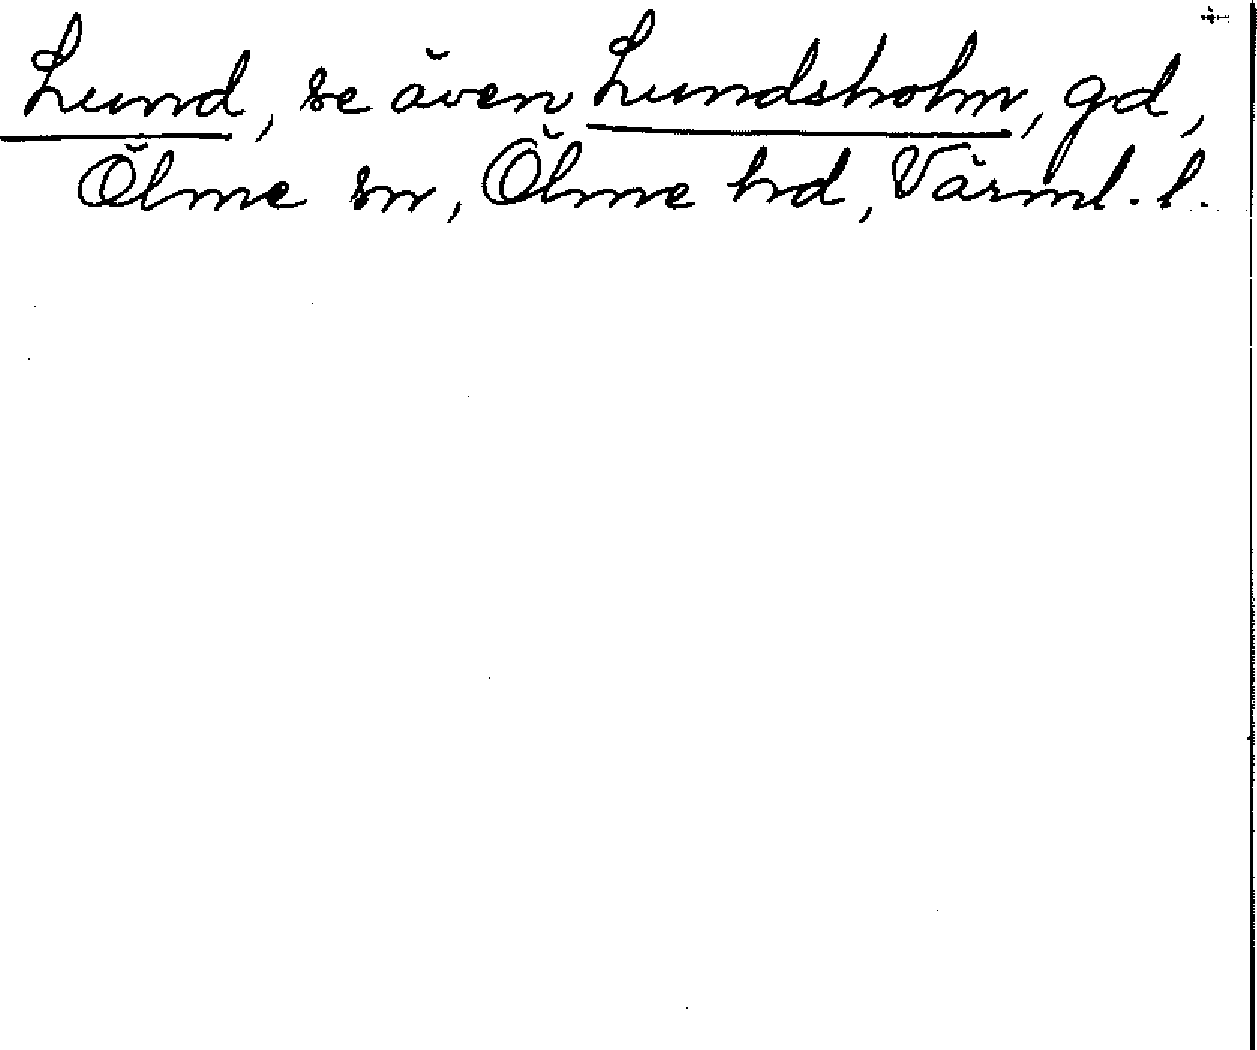 Lund, se även Lundsholm, gd,
Ölme sn, Ölme hd, Värml. l.